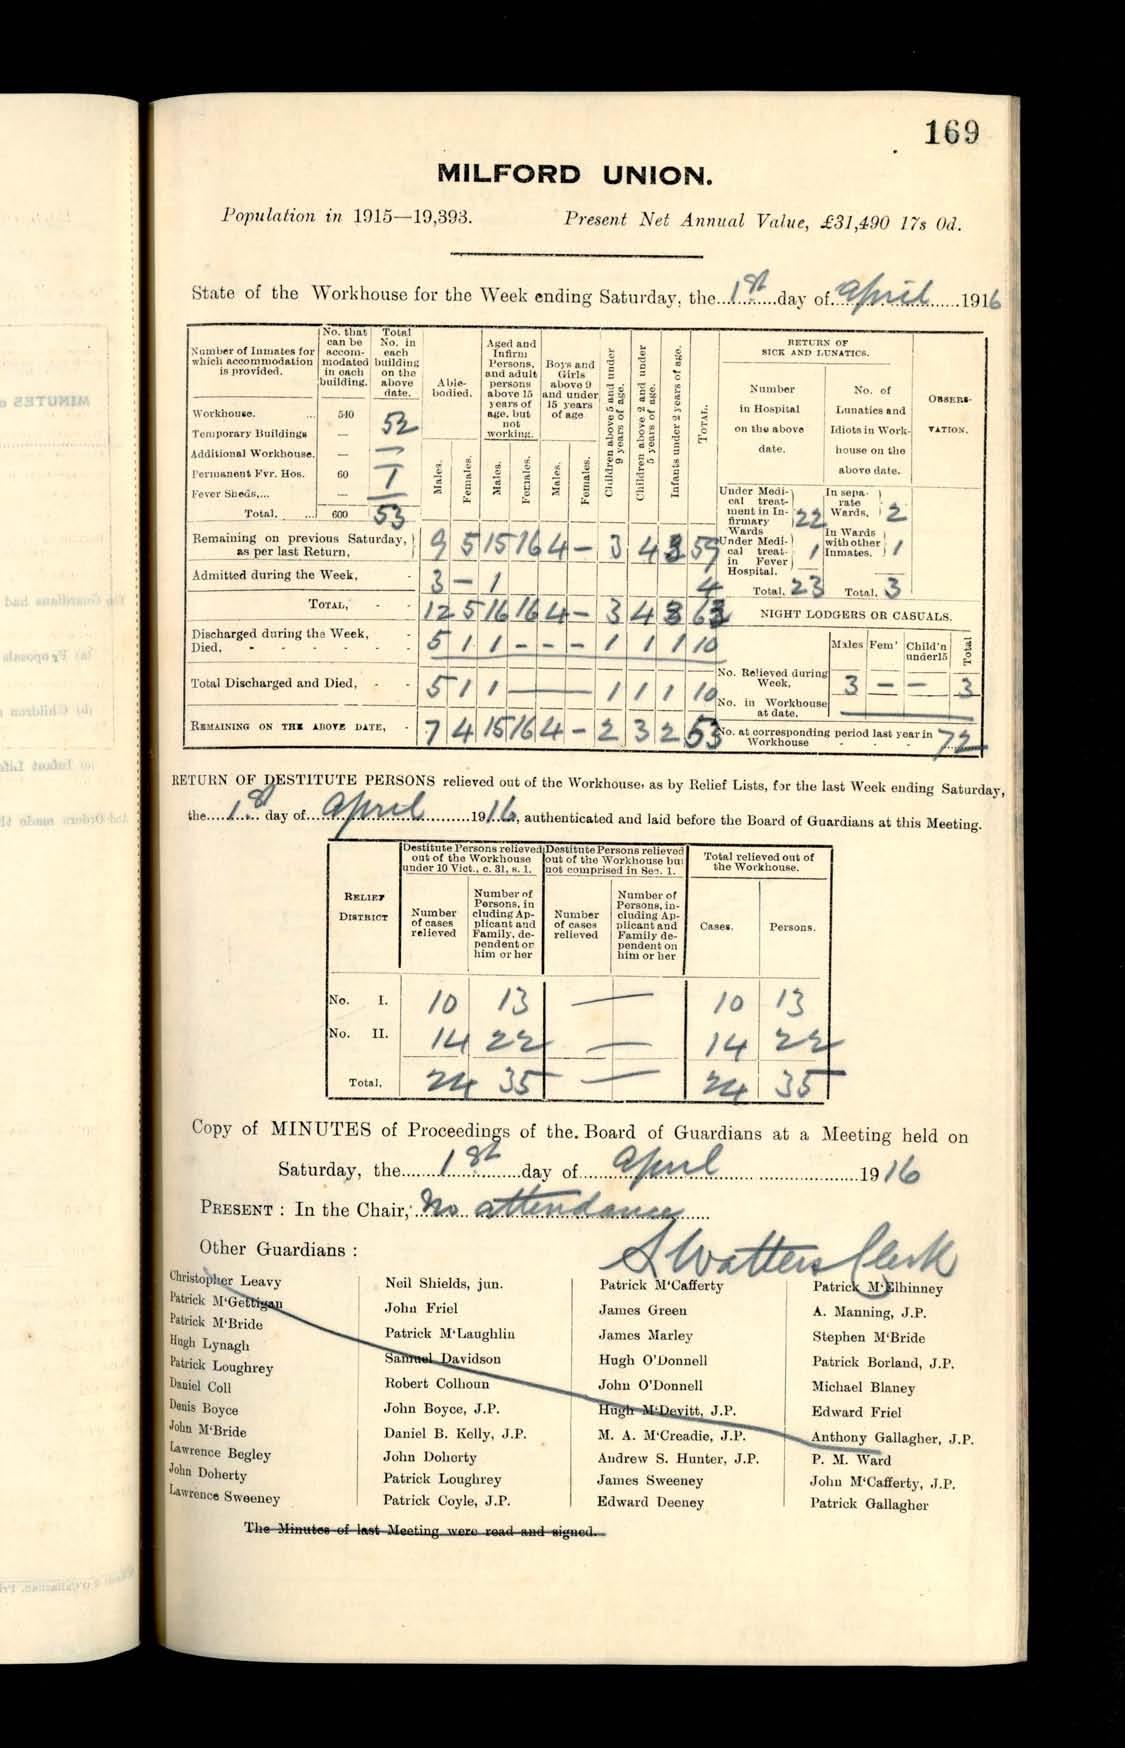 169
MILFORD UNION.
Population in 1915—19,393. Present Net Annual Value, £31,490 17s 0d.
State of the Workhouse for the Week ending Saturday, the 1st day of April 1916
Number of Inmates for which accommodation is provided. | No. that can be accommodated in each building. | Total No. in each building on the above date.
Workhouse. ... 540 52
Temporary Buildings — —
Additional Workhouse. — —
Permanent Fvr. Hos. 60 1
Fever Sheds,... — —
Total. ... 600 53
Able-bodied. Males. Females.
Aged and Infirm Persons, and adult persons above 15 years of age, but not working. Males. Females.
Boys and Girls above 9 and under 15 years of age Males. Females.
Children above 5 and under 9 years of age.
Children above 2 and under 5 years of age.
Infants under 2 years of age.
TOTAL.
Remaining on previous Saturday, as per last Return, 9 5 15 16 4 - 3 4 3 59
Admitted during the Week, - 3 - 1 4
TOTAL, - - 12 5 16 16 4 - 3 4 3 63
Discharged during the Week, -
Died, - - - - - - 5 1 1 - - - 1 1 1 10
Total Discharged and Died, - - 5 1 1 — 1 1 1 10
REMAINING ON THE ABOVE DATE, - 7 4 15 16 4 - 2 3 2 53
RETURN OF SICK AND LUNATICS.
Number in Hospital on the above date.
No. of Lunatics and Idiots in Workhouse on the above date.
OBSERVATION.
Under Medical treatment in Infirmary Wards 22
In separate Wards, 2
Under Medical treatment in Fever Hospital. 1
In Wards with other Inmates, 1
Total, 23 Total, 3
NIGHT LODGERS OR CASUALS.
Males Fem' Child'n under 15 Total
No. Relieved during Week, 3 — — 3
No. in Workhouse at date.
No. at corresponding period last year in Workhouse - - - 72
RETURN OF DESTITUTE PERSONS relieved out of the Workhouse, as by Relief Lists, for the last Week ending Saturday,
the 1st day of April 1916, authenticated and laid before the Board of Guardians at this Meeting.
RELIEF DISTRICT
Destitute Persons relieved out of the Workhouse under 10 Vict., c. 31, s. 1.
Destitute Persons relieved out of the Workhouse but not comprised in Sec. 1.
Total relieved out of the Workhouse.
Number of cases relieved
Number of Persons, in cluding Applicant and Family, dependent or him or her
Number of cases relieved
Number of Persons, including Applicant and Family dependent on him or her
Cases. Persons.
No. I. 10 13 — 10 13
No. II. 14 22 — 14 22
Total, 24 35 — 24 35
Copy of MINUTES of Proceedings of the Board of Guardians at a Meeting held on
Saturday, the 1st day of April 1916
PRESENT : In the Chair, No attendance
S Watters Clerk
Other Guardians :
Christopher Leavy
Patrick M'Gettigan
Patrick M'Bride
Hugh Lynagh
Patrick Loughrey
Daniel Coll
Denis Boyce
John M'Bride
Lawrence Begley
John Doherty
Lawrence Sweeney
Neil Shields, jun.
John Friel
Patrick M'Laughlin
Samuel Davidson
Robert Colhoun
John Boyce, J.P.
Daniel B. Kelly, J.P.
John Doherty
Patrick Loughrey
Patrick Coyle, J.P.
Patrick M'Cafferty
James Green
James Marley
Hugh O'Donnell
John O'Donnell
Hugh M'Devitt, J.P.
M. A. M'Creadie, J.P.
Andrew S. Hunter, J.P.
James Sweeney
Edward Deeney
Patrick M'Elhinney
A. Manning, J.P.
Stephen M'Bride
Patrick Borland, J.P.
Michael Blaney
Edward Friel
Anthony Gallagher, J.P.
P. M. Ward
John M'Cafferty, J.P.
Patrick Gallagher
The Minutes of last Meeting were read and signed.